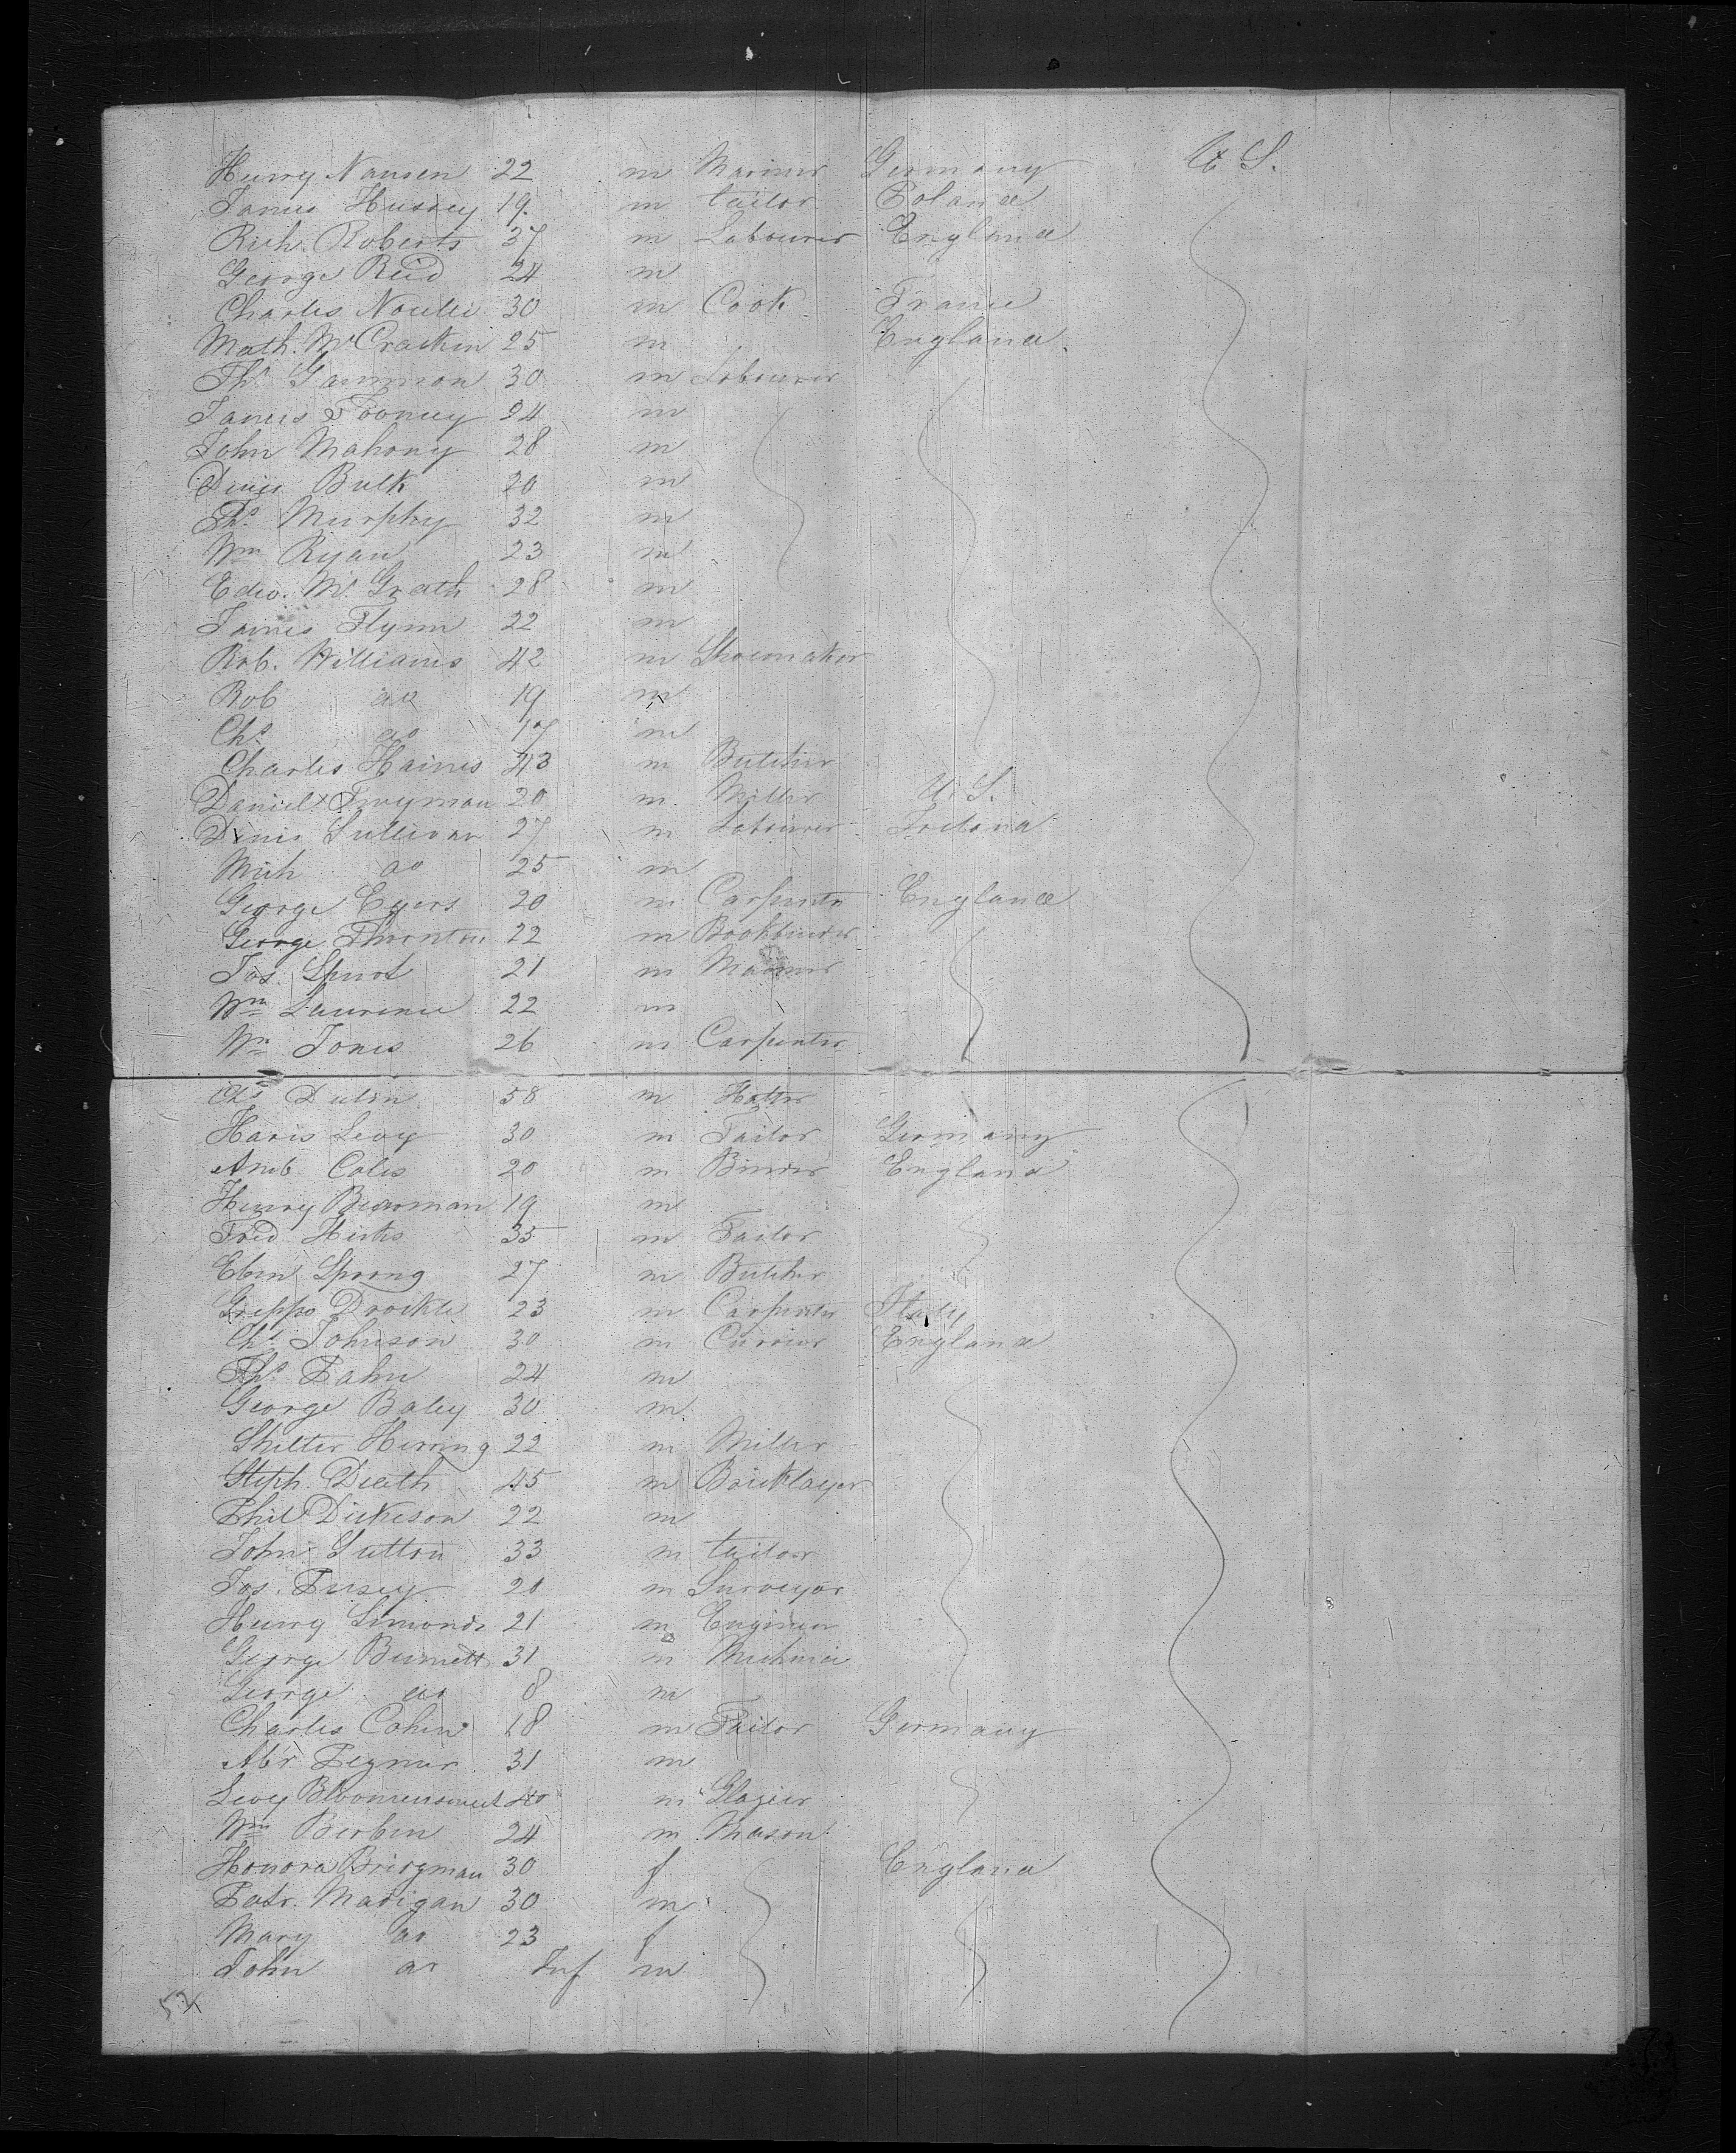 Henry Nansen 22 m Mariner Germany U S.
James Hussey 19. m tailor Poland
Rich. Roberts 37 m Labourer England
George Reid 24 m
Charles Noulei 30 m Cook France
Math. McCrackin 25 m England
Ths Gammon 30 m Labourer
James Toomey 24 m
John Mahony 28 m
Denis Bulk 20 m
Ths. Murphy 32 m
Wm Ryan 23 m
Edw. Mc Grath 28 m
James Flynn 22 m
Rob. Williams 42 m Shoemaker
Rob do 19 m
Chs. do 17 m
Charles Haines 43 m Butcher
Daniel Twyman 20 m Miller U. S.
Denis Sullivan 27 m Labourer Ireland
Mich do 25 m
George Egers 20 m Carpenter England
George Thornton 22 m Bookbinder
Jos. Spurt 21 m Mariner
Wm Laurence 22 m
Wm Jones 26 m Carpenter
Chs Dulin 58 m Hatter
Haris Levy 30 m Tailor Germany
Amb Coles 20 m Binder England
Henry Bearman 19 m
Fred. Hicks 35 m Tailor
Eben Sprong 27 m Butcher
Greppo Drockle 23 m Carpenter Italy
Chs Johnson 30 m Currier England
Ths. Fahn 24 m
George Baley 30 m
Shelter Herring 22 m Miller
Steph. Death 45 m Bricklayer
Phil Dickeson 22 m
John Sutton 33 m tailor
Jos. Pusey 20 m Surveyor
Henry Simonds 21 m Engineer
George Burnett 31 m Mechanic
George do 8 m
Charles Cohen 18 m Tailor Germany
Abr Pegner 31 m
Levy 40 m Glazier
Wm Berben 24 m Mason
Honora Bridgman 30 f England
Patr. Madigan 30 m
Mary do 23 f
John do Inf m
52